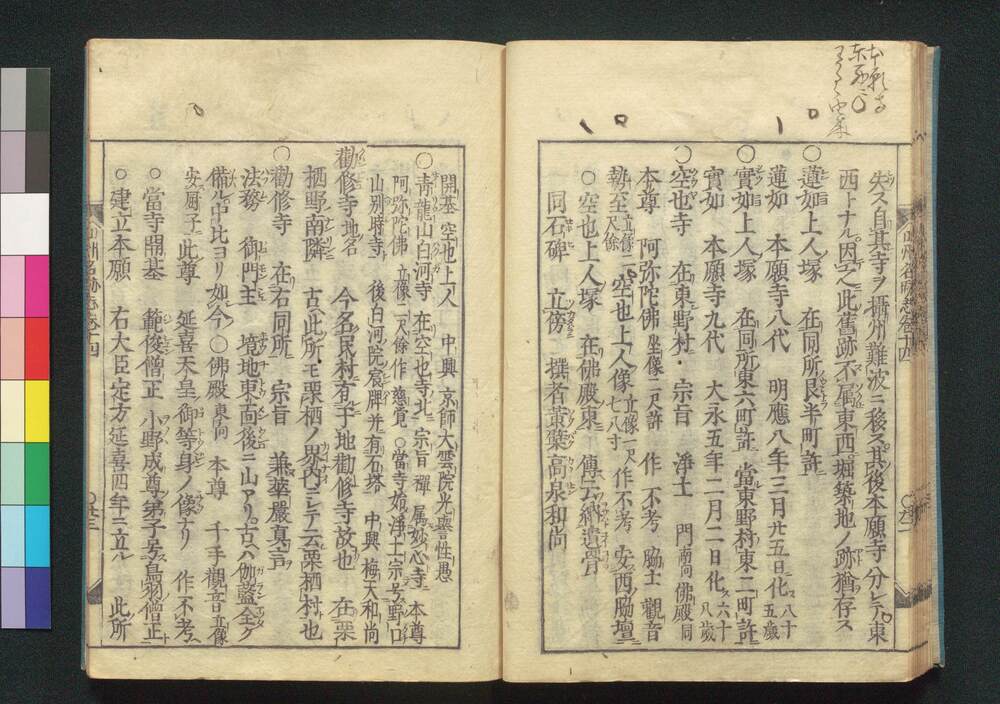 失ス自其寺ヲ摂州難波ニ移ス其後本願寺分レテ東
西トナル因之此舊跡不属東西堀築地ノ跡猶存ス
○蓮如上人塚 在同所艮半町許
蓮如 本願寺八代 明應八年三月廿五日化ス八十五歳
○實如上人塚 在同所東六町許 當東野村東二町許
實如 本願寺九代 大永五年二月二日化ス六十八歳
○空也寺 在東野村 宗旨 淨土 門南向佛殿同
本尊 阿弥陀佛 坐像二尺許 作不考 脇士 觀音
勢至 立像二尺餘 空也上人像 立像一尺七八寸 作不考 安西脇壇
○空也上人塚 在佛殿東 傳云納遺骨
同石碑 立傍 撰者黄檗高泉和尚
開基 空也上人 中興 京師大雲院光譽性愚
○青龍山白河寺 在空也寺北 宗旨 禪 属妙心寺 本尊
阿弥陀佛 立像二尺餘 作 慈覚 ○當寺娘淨土宗号野口
山別時寺 後白河院宸牌并有石塔 中興 梅天和尚
勸修寺 地名 今名民村有于地勸修寺故也 在栗
栖野南隣 古ヘ此所モ栗栖ノ界内ニシテ云栗栖村也
○勸修寺 在右同所 宗旨 兼華嚴真言
法務 御門主 境地東面後ニ山アリ古ヘハ伽藍全ク
備ル中比ヨリ如今 ○佛殿 東向 本尊 千手觀音 立像
安厨子 此尊 延喜天皇御等身ノ像ナリ 作不考
○當寺開基 範俊僧正 小野成尊弟子号鳥羽僧正
○建立本願 右大臣定方延喜四年ニ立ル 此所
山州名跡志巻十四